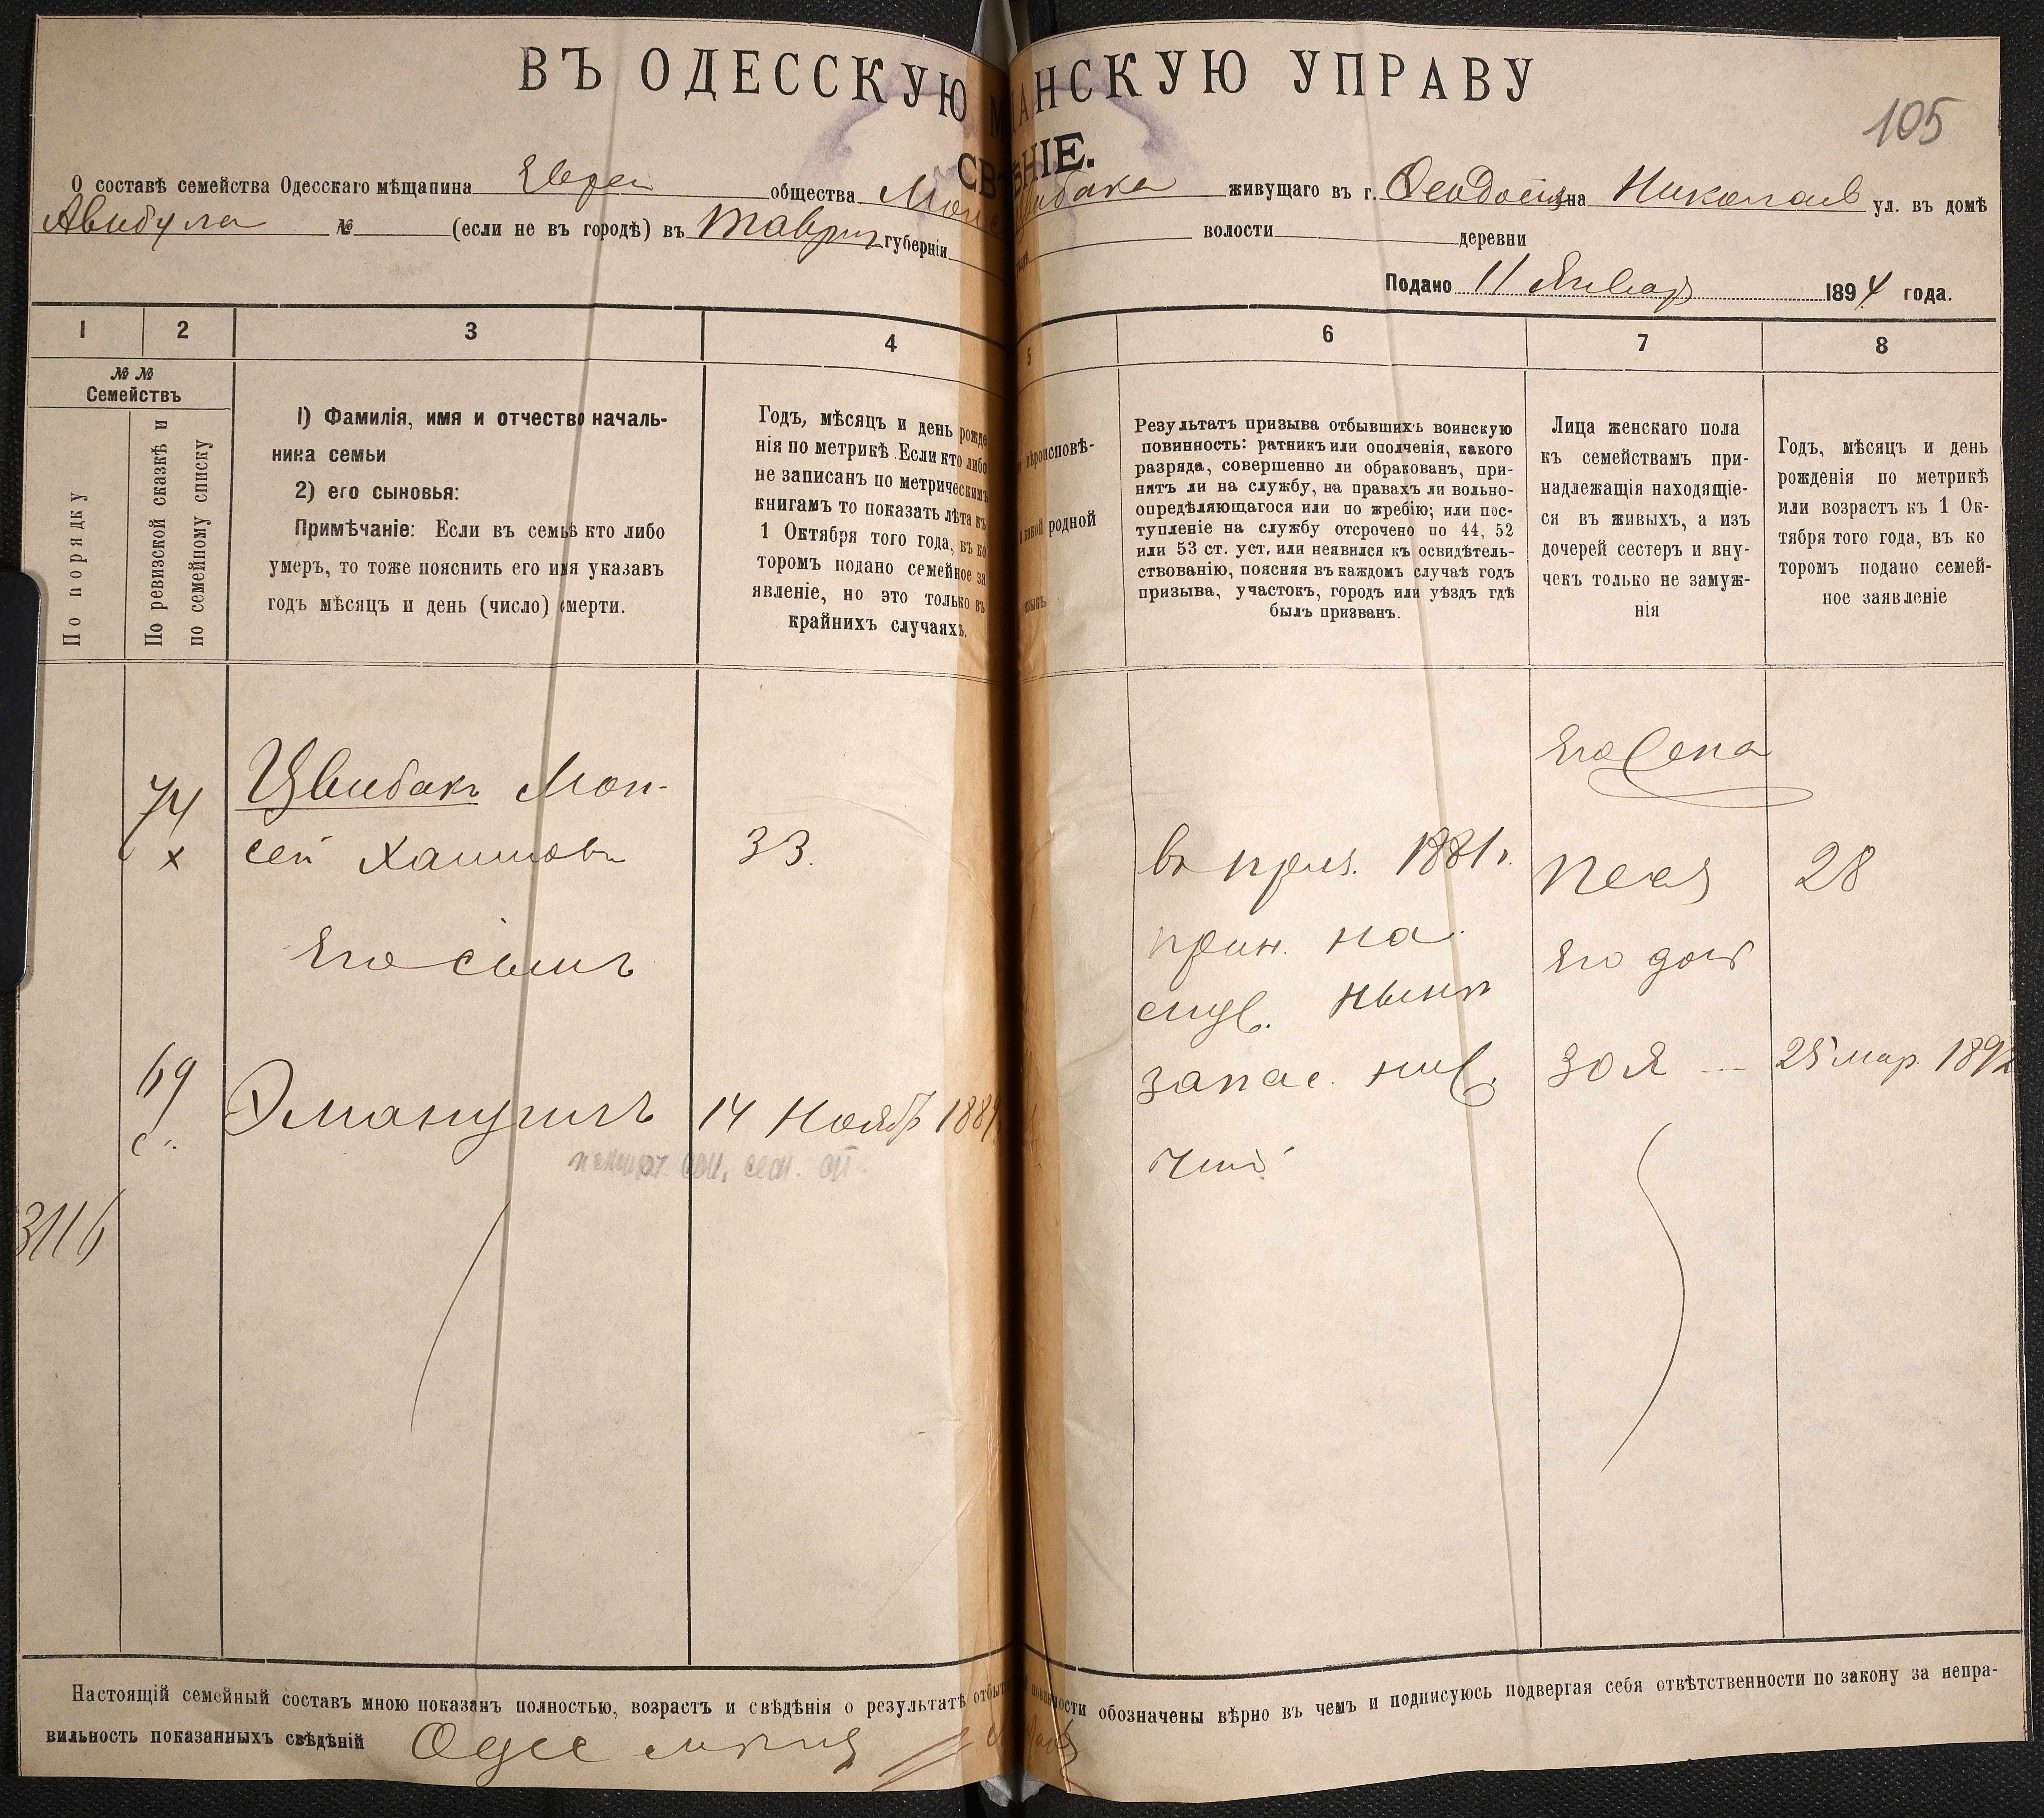 ВЪ ОДЕССКУЮ М АНСКУЮ УПРАВУ
105
СВ ѢНІЕ.
О составѣ семейства Одесскаго мѣщанина Еврея общества живущаго въ г. Ѳеодосіи на Николаев ул. въ домѣ
Авибула № (если не въ городѣ) въ Таврич губерніи волости деревни
Подано 11 Январ 1894 года.
1 2 3 4 5 6 7 8
№ №
Семействъ
По порядку
По ревизской сказкѣ и
по семейному списку
1) Фамилія, имя и отчество началь-
ника семьи
2) его сыновья:
Примѣчаніе: Если въ семьѣ кто либо
умеръ, то тоже пояснить его имя указавъ
годъ мѣсяцъ и день (число) смерти.
Годъ, мѣсяцъ и день рожде
нія по метрикѣ. Если кто либо
не записанъ по метрическимъ
книгамъ то показать лѣта къ
1 Октября того года, въ ко
торомъ подано семейное за
явленіе, но это только въ
крайнихъ случаяхъ.
вѣроисповѣ-
какой родной
языкъ
Результатъ призыва отбывшихъ воинскую
повинность: ратникъ или ополченія, какого
разряда, совершенно ли обракованъ, при-
нятъ ли на службу, на правахъ ли вольно-
опредѣляющагося или по жребію; или пос-
тупленіе на службу отсрочено по 44, 52
или 53 ст. уст. или неявился къ освидѣтель-
ствованію, поясняя въ каждомъ случаѣ годъ
призыва, участокъ, городъ или уѣздъ гдѣ
былъ призванъ.
Лица женскаго пола
къ семействамъ при-
надлежащія находящіе-
ся въ живыхъ, а изъ
дочерей сестеръ и вну-
чекъ только не замуж-
нія
Годъ, мѣсяцъ и день
рожденія по метрикѣ
или возрастъ къ 1 Ок-
тября того года, въ ко
торомъ подано семей-
ное заявленіе
74
х
Цвибакъ Мои-
сей Хаимовъ
33.
Его сынъ
69
Эмануилъ
14 Ноябр 1889
3116
въ приз. 1881г.
прин. на
служ. нынѣ
запас. ниж.
чинъ
Его жена
Песя
28
Его дочь
Зоя
25 мар. 1892
Настоящій семейный составъ мною показанъ полностью, возрастъ и свѣдѣнія о результатѣ отбыт повинности обозначены вѣрно въ чемъ и подписуюсь подвергая себя отвѣтственности по закону за непра-
вильность показанныхъ свѣдѣній Одес мѣщ